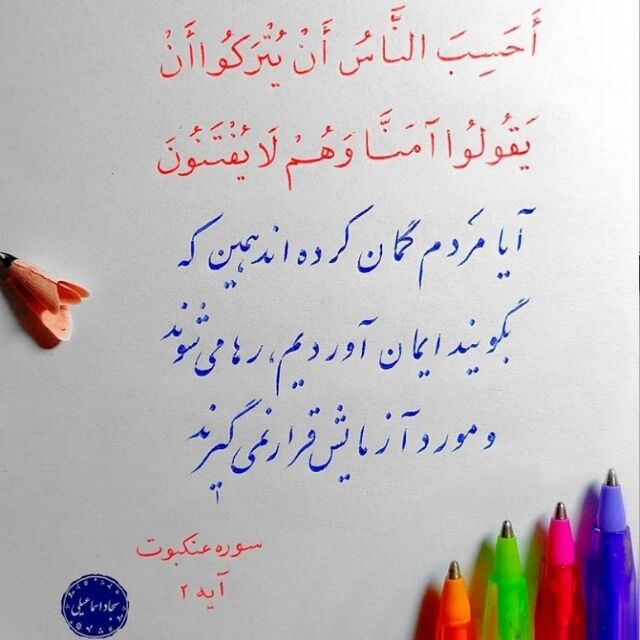 أَحَسِبَ النَّاسُ أَنْ يُتْرَكُوا أَنْ
يَقُولُوا آمَنَّا وَهُمْ لَا يُفْتَنُونَ
آیا مردم گمان کرده اند همین که
بگویند ایمان آوردیم، رها می شوند
و مورد آزمایش قرار نمی گیرند
سوره عنکبوت
آیه ۲
سجاد اسماعیلی